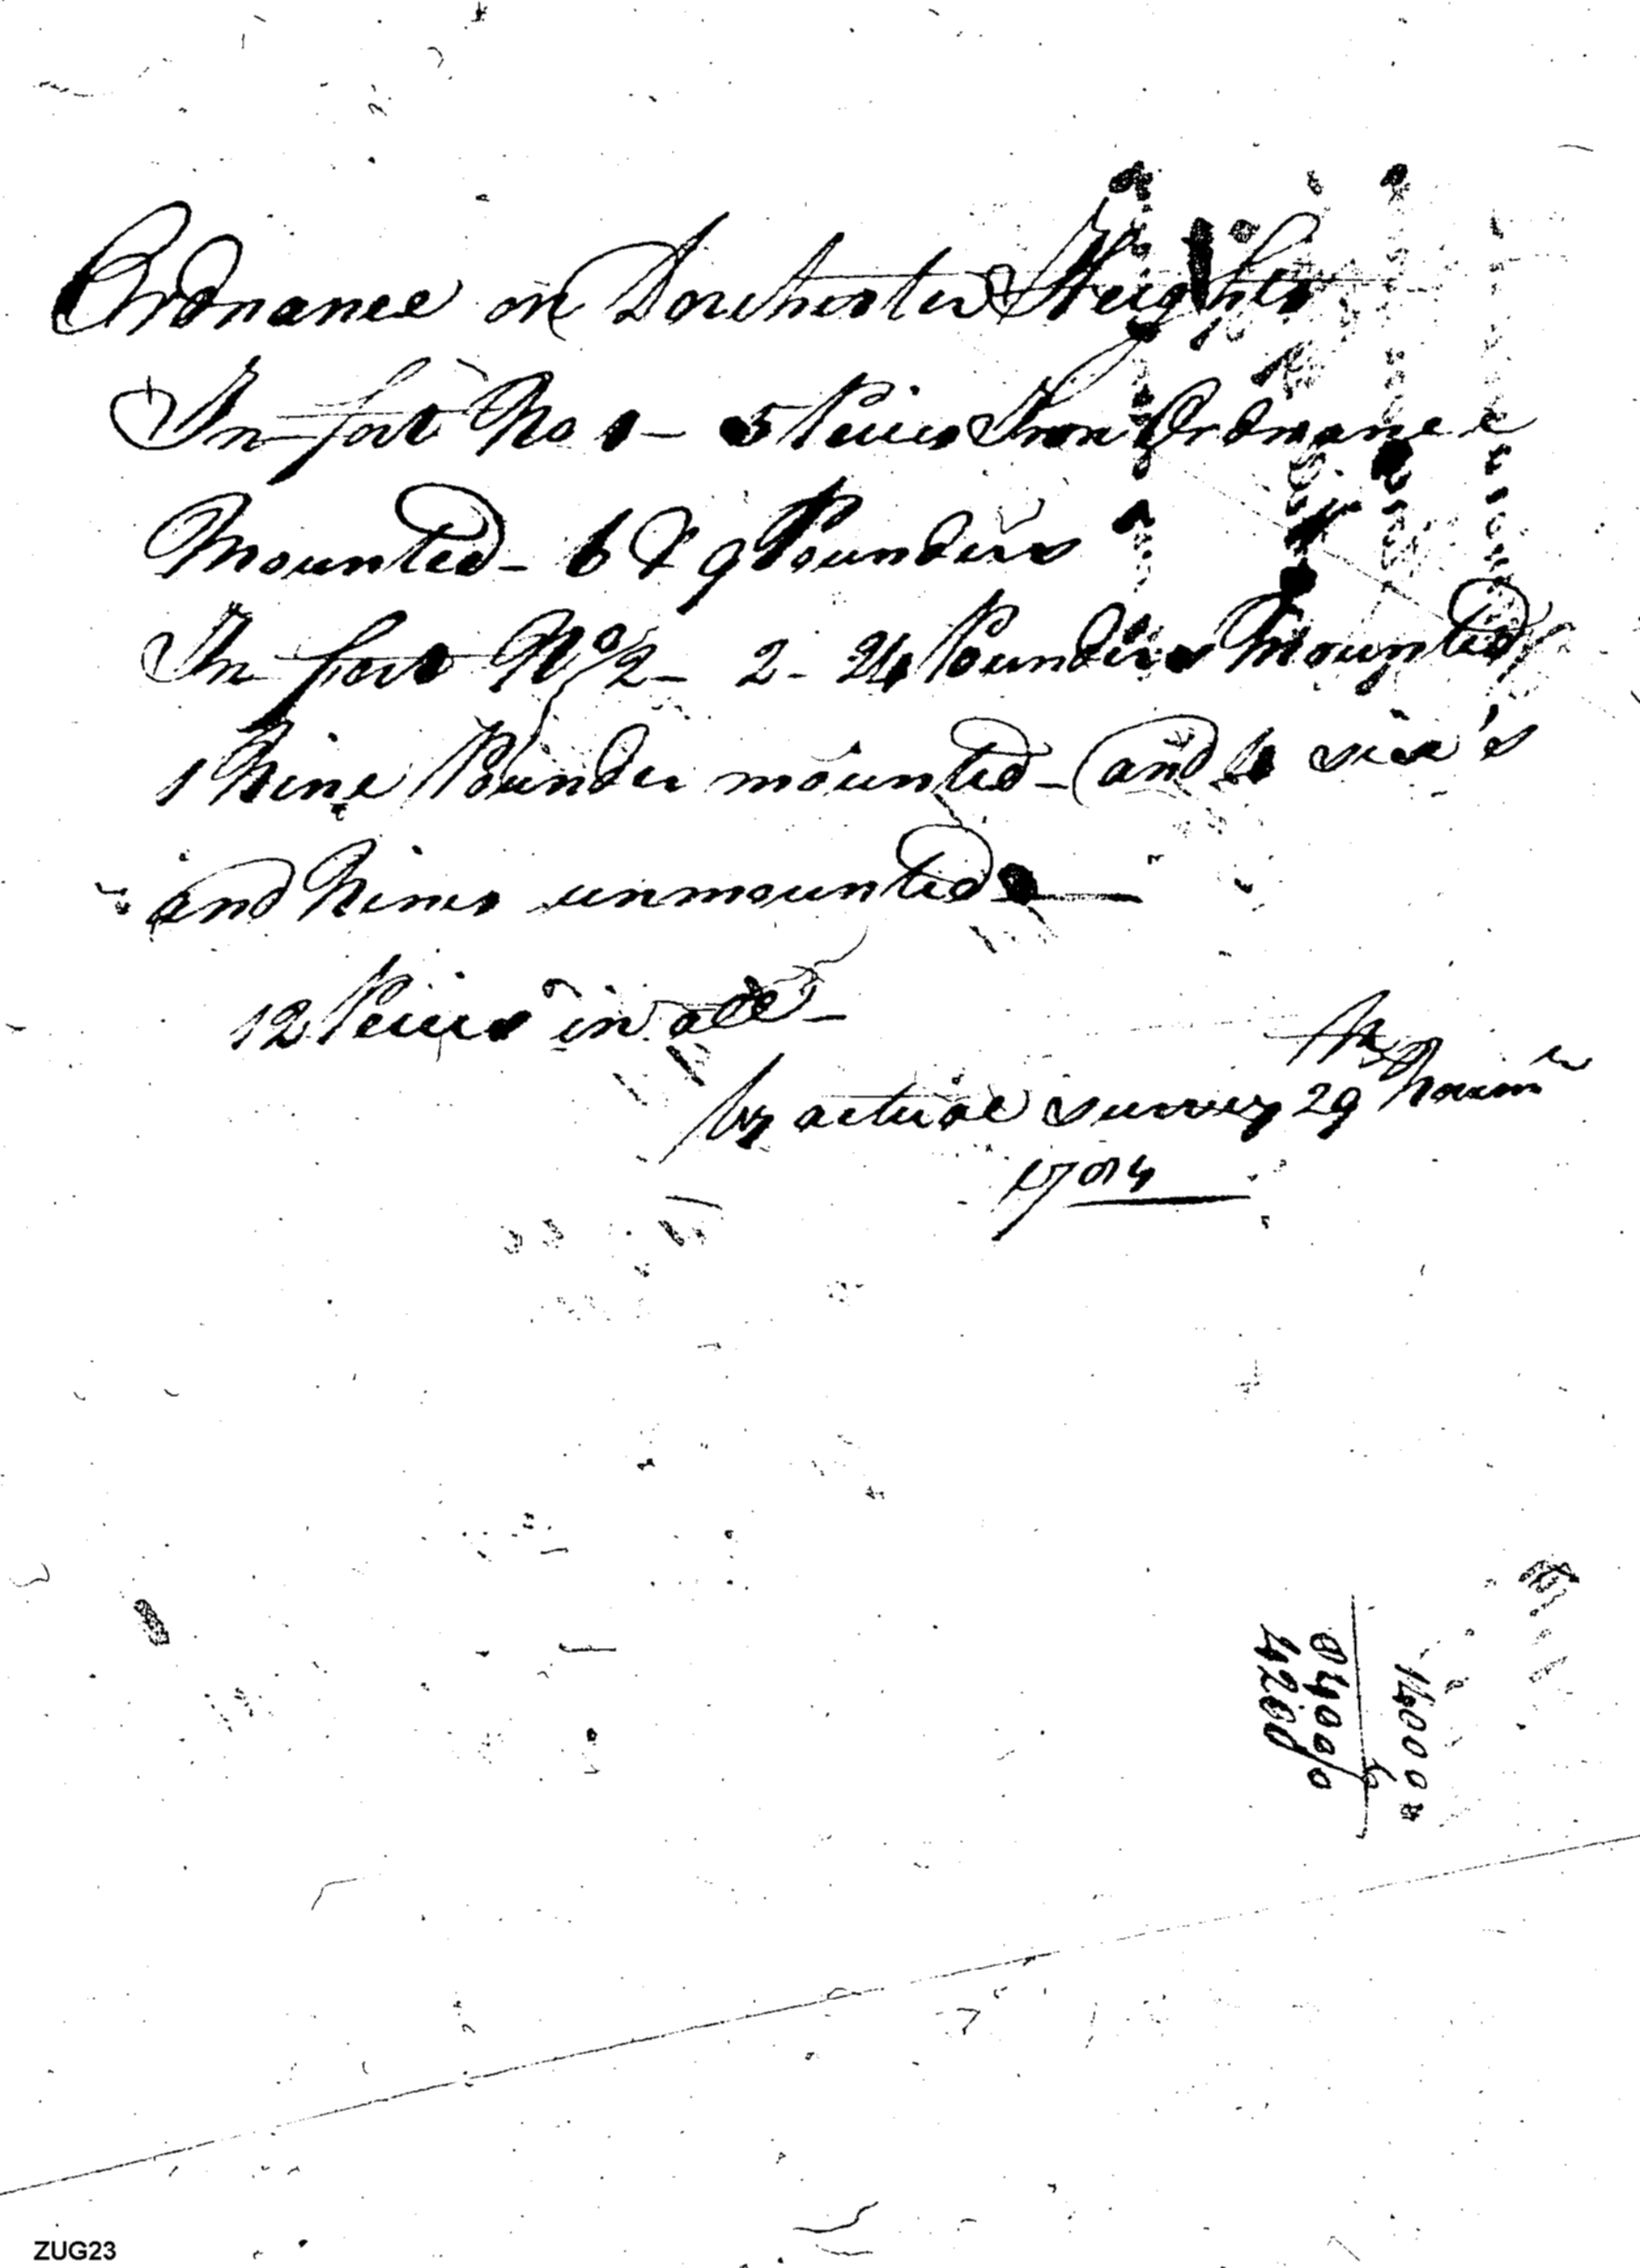 Ordnance on Dorchester Heights
In fort No 1 - 5 Peices Iron Ordnance
Mounted - 6 & 9 Pounders
In fort No 2 - 2 - 24 Pounders Mounted
1 Nine Pounder mounted - and 4 six's
and Nines unmounted
12 Peices in all -
by actual survey 29 Novem
1794
14000
8400
4200
ZUG23